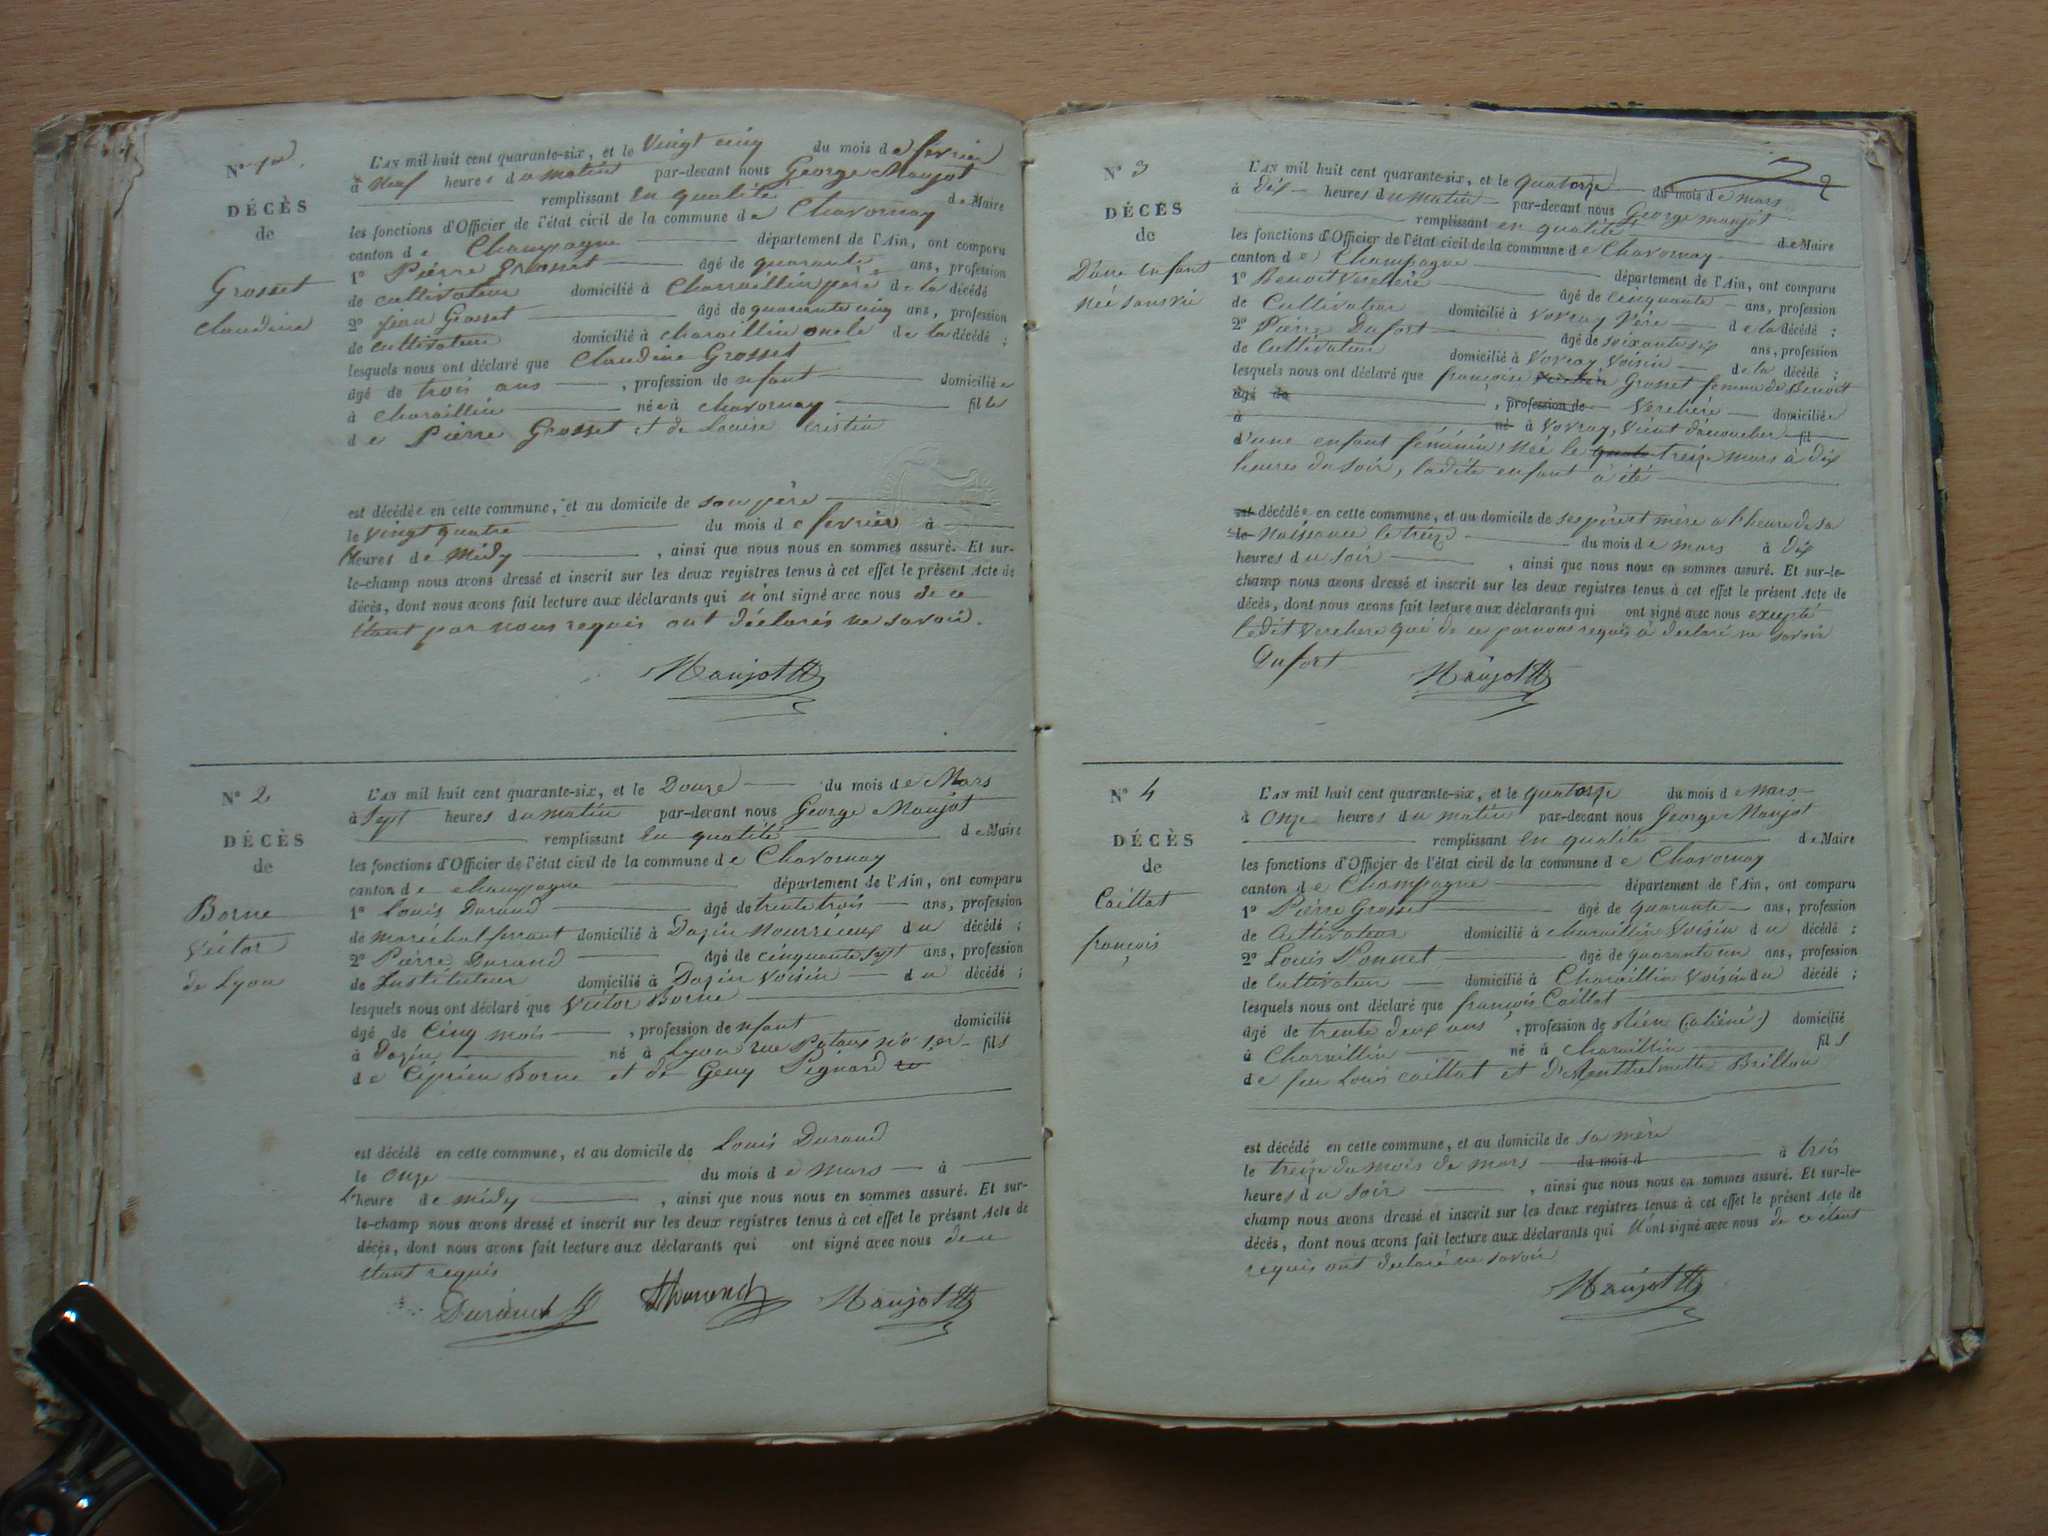 N° 1er
DÉCÈS
de
Grosset
Claudine
L'AN mil huit cent quarante-six, et le vingt cinq du mois de février
à neuf heures du matin par-devant nous George Maujot
remplissant en qualité de Maire
les fonctions d'Officier de l'état civil de la commune de Chavornay
canton de Champagne département de l'Ain, ont comparu
1° Pierre Grosset âgé de quarante ans, profession
de cultivateur domicilié à Charaillin père de la décédé
2° Jean Grosset âgé de quarante cinq ans, profession
de cultivateur domicilié à charaillin oncle de la décédé ;
lesquels nous ont déclaré que Claudine Grosset
âgé de trois ans , profession de nfant domiciliée
à Charaillin née à chavornay fille
de Pierre Grosset et de Louise Cristin
est décédée en cette commune, et au domicile de son père
le vingt quatre du mois de février à
heures de Midy , ainsi que nous nous en sommes assuré. Et sur-
le-champ nous avons dressé et inscrit sur les deux registres tenus à cet effet le présent Acte de
décès, dont nous avons fait lecture aux déclarants qui n'ont signé avec nous de ce
étant par nous requis ont déclarés ne savoir.
Maujot
N° 2
DÉCÈS
de
Borne
Victor
de Lyon
L'AN mil huit cent quarante-six, et le Douze du mois de Mars
à Sept heures du matin par-devant nous George Maujot
remplissant en qualité de Maire
les fonctions d'Officier de l'état civil de la commune de Chavornay
canton de champagne département de l'Ain, ont comparu
1° Louis Durand âgé de trente trois ans, profession
de maréchal ferrant domicilié à Dazin Nourricieux du décédé ;
2° Pierre Durand âgé de cinquante sept ans, profession
de Instituteur domicilié à Dazin Voisin du décédé ;
lesquels nous ont déclaré que Victor Borne
âgé de Cinq mois , profession de nfant domicilié
à Dazin né à Lyon rue n° 1er fils
de Ciprien Borne et de Geny Pignard
est décédé en cette commune, et au domicile de Louis Durand
le onze du mois de mars à
l'heure de midy , ainsi que nous nous en sommes assuré. Et sur-
le-champ nous avons dressé et inscrit sur les deux registres tenus à cet effet le présent Acte de
décès, dont nous avons fait lecture aux déclarants qui ont signé avec nous de ce
étant requis
Durand Durand Maujot
2
N° 3
DÉCÈS
de
D'une enfant
née sans vie
L'AN mil huit cent quarante-six, et le quatorze du mois de mars
à dix heures du matin par-devant nous George maujot
remplissant en qualité de Maire
les fonctions d'Officier de l'état civil de la commune de Chavornay
canton de Champagne département de l'Ain, ont comparu
1° Benoit Verchère âgé de cinquante ans, profession
de Cultivateur domicilié à Vovray Père de la décédé ;
2° Pierre Dufort âgé de soixante six ans, profession
de Cultivateur domicilié à Vovray Voisin de la décédé ;
lesquels nous ont déclaré que françoise Grosset femme de Benoit
âgé de , profession de Verchère domiciliée
à né à Vovray, vient d'acoucher fil
d'une enfant féminin, née le treize mars à dix
heures du soir, ladite enfant à été
est décédée en cette commune, et au domicile de ses père et mère a l'heure de sa
le Naissance le treize du mois de mars à dix
heures du soir , ainsi que nous nous en sommes assuré. Et sur-le-
champ nous avons dressé et inscrit sur les deux registres tenus à cet effet le présent Acte de
décès, dont nous avons fait lecture aux déclarants qui ont signé avec nous excepté
ledit Verchere qui de ce par nous requis à déclaré ne savoir
Dufort Maujot
N° 4
DÉCÈS
de
Caillat
françois
L'AN mil huit cent quarante-six, et le quatorze du mois de Mars
à onze heures du matin par-devant nous George Maujot
remplissant en qualité de Maire
les fonctions d'Officier de l'état civil de la commune de Chavornay
canton de Champagne département de l'Ain, ont comparu
1° Pierre Grosset âgé de quarante ans, profession
de Cultivateur domicilié à charaillin Voisin du décédé ;
2° Louis Ponnet âgé de quarante un ans, profession
de Cultivateur domicilié à Charaillin Voisin du décédé ;
lesquels nous ont déclaré que françois Caillat
âgé de trente deux ans , profession de Rien (aliéné) domicilié
à Charaillin né à charaillin fils
de feu Louis caillat et d'Anthelmette Brillon
est décédé en cette commune, et au domicile de sa mère
le treize du mois de mars du mois d à trois
heures du soir , ainsi que nous nous en sommes assuré. Et sur-le-
champ nous avons dressé et inscrit sur les deux registres tenus à cet effet le présent Acte de
décès, dont nous avons fait lecture aux déclarants qui n'ont signé avec nous de ce étant
requis ont déclaré ne savoir
Maujot